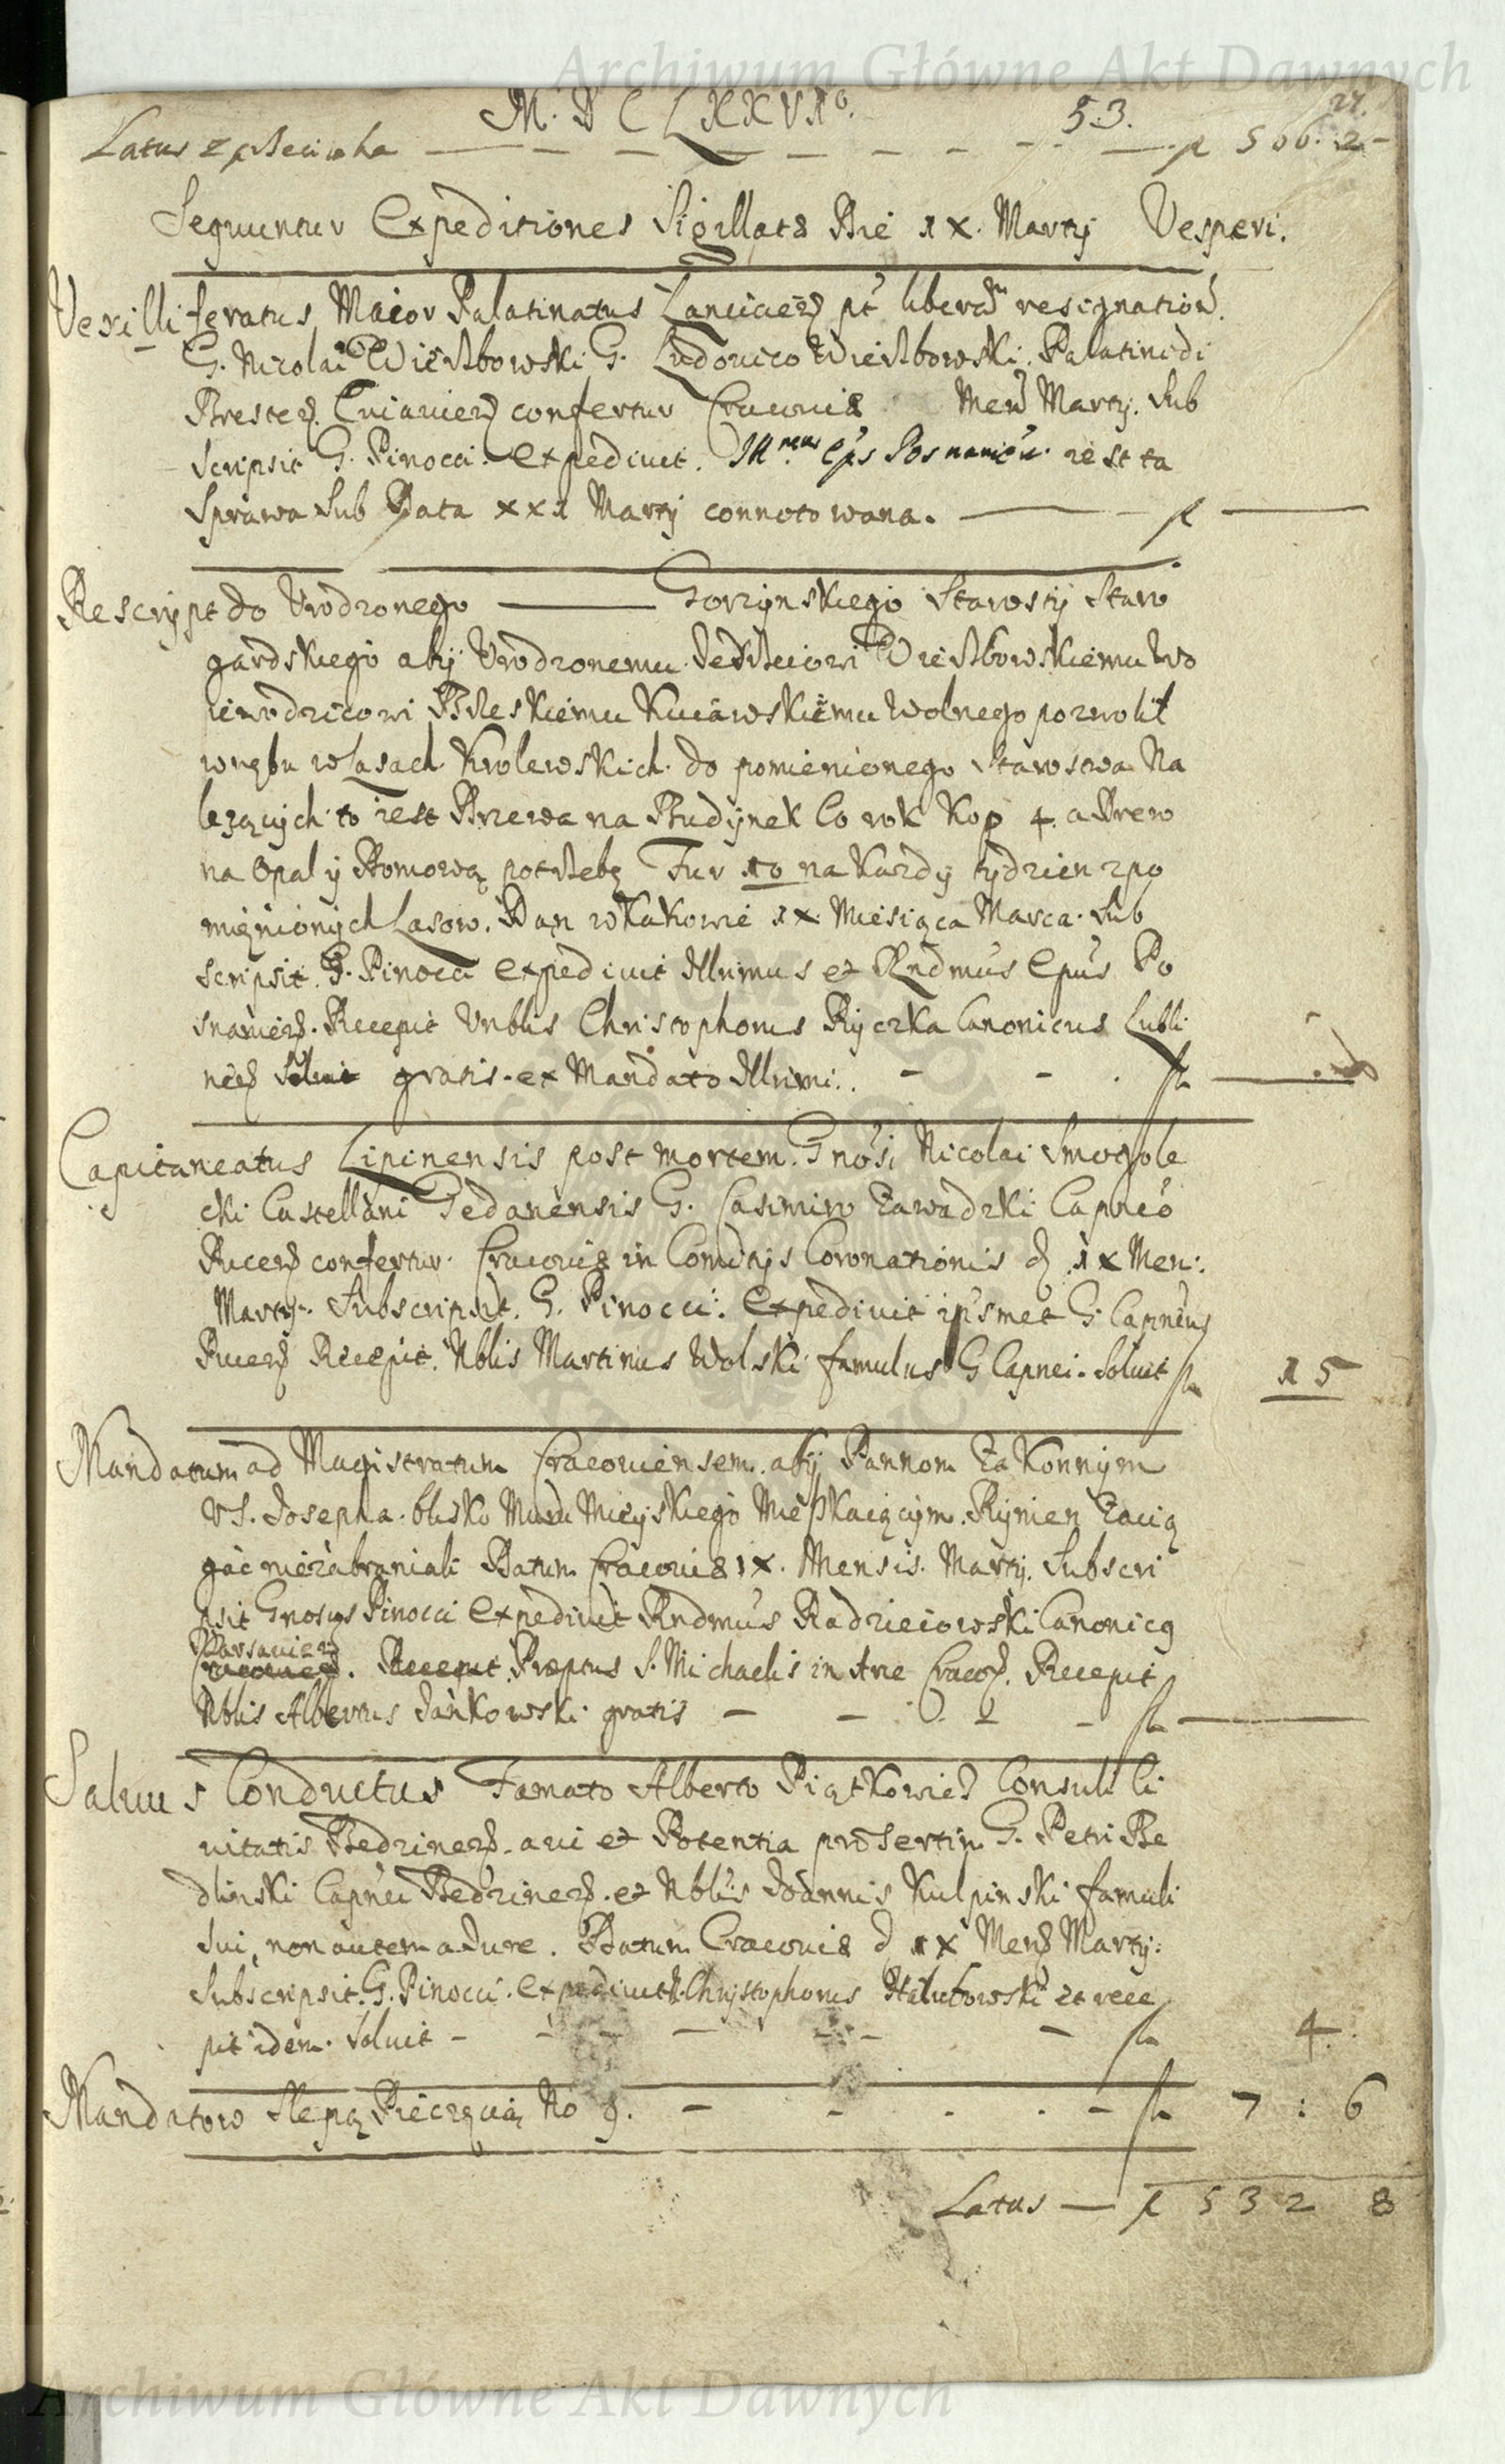 Archiwum Główne Akt Dawnych
M. D C LXXVIo. 53. 27.
Latus z przeciwka — — — — — — — fl 506. 2 -
Sequuntur Expeditiones Sigillatæ Die IX. Martij Vesperi.
Vexilliferatus Maior Palatinatus Lanciciens pt liberam resignation.
G. Nicolai Wierzbowski G. Ludovico Wierzbowski. Palatinidi
Brestens. Cuiaviens confertur Cracouiæ Mens Martij. Sub
scripsit G. Pinocci. Expediuit. Eps Posnanien. iest ta
Sprawa Sub Data XXI Martij connotowana. — fl —
Rescrypt do Vrodzonego — Gorzynskiego Starosty Staro
gardskiego aby Vrodzonemu Wierzbowskiemu Wo
iewodzicowi Brzeskiemu Kuiawskiemu Wolnego pozwolił
wrębu w Lasach Krolewskich do pomienionego Starostwa Na
lezących to iest Drzewa na Budynek Co rok Kop 4. a Drew
na Opal y Domową potrzebę Fur 10 na Kazdy tydzien z po
mięnionych Lasow. Dan w Kakowie IX Miesiąca Marca. Sub
scripsit G. Pinocci Expediuit Illrimus et Rndmus Epus Po
snaniens. Recepit Vnblis Christophorus Ryczka Canonicus Lubli
nens Soluit gratis ex Mandato Illrimi. - - . fl —
Capitaneatus Lipinensis post mortem Gnosi Nicolai Smogole
cki Castellani Gedanensis G. Casimiro Zawadzki Capneo
Pucens confertur Cracouiæ in Comitijs Coronationis d. IX Men:
Martij. Subscripsit. G. Pinocci. Expediuit ipsmet G. Capneus
Pucens Recepit. Nblis Martinus Wolski famulus G Capnei. Soluit fl 15
Mandatum ad Magistratum Cracouiensem. aby Pannom Zakonnym
v S. Josepha. blisko Muru Mieyskiego Mieszkaiącym. Rynien Zacią
gać niezabraniali Datum Cracouiæ IX. Mensis. Martij. Subscri
psit Gnosus Pinocci Expediuit Rndmus Radzieiowski Canonicq
Varsauiens
Cracouiens. Recepit Præptus S. Michaelis in Arce Cracos. Recepit
Nblis Albertus Jankowski gratis - - - - fl —
Saluus Conductus Famato Alberto Piątkowicz Consuli Ci
uitatis Bedzinens. a vi et Potentia prosertim G. Petri Be
dlinski Capnei Bedzinens. et Nblis Joannis Kulpinski famuli
Sui, non autem a Iure. Datum Cracouiæ d IX Mens Martij.
Subscripsit. G. Pinocci. Expediuit. Christophorus Holubowski et rece
pit idem. Soluit - - - - - fl 4.
Mandatow Slepą Pieczęcią No 9. - - . . - fl 7 : 6
Latus — fl 532 8
Archiwum Główne Akt Dawnych